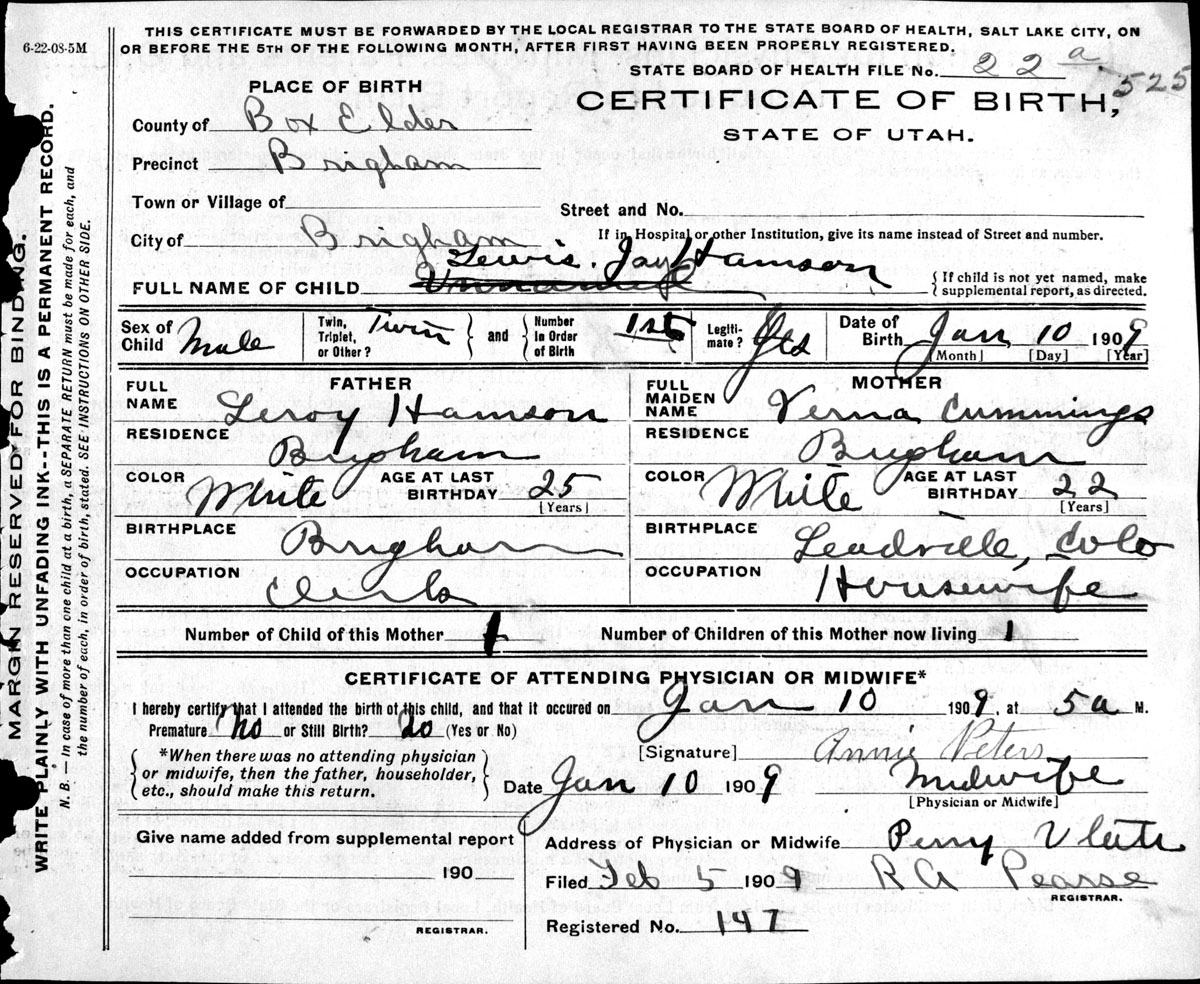 THIS CERTIFICATE MUST BE FORWARDED BY THE LOCAL REGISTRAR TO THE STATE BOARD OF HEALTH, SALT LAKE CITY, ON
6-22-08-5M
OR BEFORE THE 5TH OF THE FOLLOWING MONTH, AFTER FIRST HAVING BEEN PROPERLY REGISTERED.
STATE BOARD OF HEALTH FILE No. 22 a 525
PLACE OF BIRTH
CERTIFICATE OF BIRTH,
County of Box Elder
STATE OF UTAH.
Precinct Brigham
Town or Village of
Street and No.
City of Brigham
If in Hospital or other Institution, give its name instead of Street and number.
Lewis Jay Hamson
FULL NAME OF CHILD Unnamed
{ If child is not yet named, make supplemental report, as directed.
Sex of Child Male
Twin, Triplet, or Other? Twin } and { Number In Order of Birth 1st
Legiti-mate? Yes
Date of Birth Jan 10 1909
[Month] [Day] [Year]
FATHER
FULL NAME Leroy Hamson
RESIDENCE Brigham
COLOR White AGE AT LAST BIRTHDAY 25
[Years]
BIRTHPLACE Brigham
OCCUPATION Clerk
MOTHER
FULL MAIDEN NAME Verna Cummings
RESIDENCE Brigham
COLOR White AGE AT LAST BIRTHDAY 22
[Years]
BIRTHPLACE Leadville, Colo
OCCUPATION Housewife
Number of Child of this Mother 1 Number of Children of this Mother now living 1
CERTIFICATE OF ATTENDING PHYSICIAN OR MIDWIFE*
I hereby certify that I attended the birth of this child, and that it occured on Jan 10 1909, at 5a M.
Premature No or Still Birth? No (Yes or No)
*When there was no attending physician
or midwife, then the father, householder,
etc., should make this return.
[Signature] Annie Peters
Date Jan 10 1909 Midwife
[Physician or Midwife]
Give name added from supplemental report
190
REGISTRAR.
Address of Physician or Midwife Perry Utah
Filed Feb 5 1909 R A Pearse
REGISTRAR.
Registered No. 147
MARGIN RESERVED FOR BINDING.
WRITE PLAINLY WITH UNFADING INK--THIS IS A PERMANENT RECORD.
N. B. — In case of more than one child at a birth, a SEPARATE RETURN must be made for each, and
the number of each, in order of birth, stated. SEE INSTRUCTIONS ON OTHER SIDE.